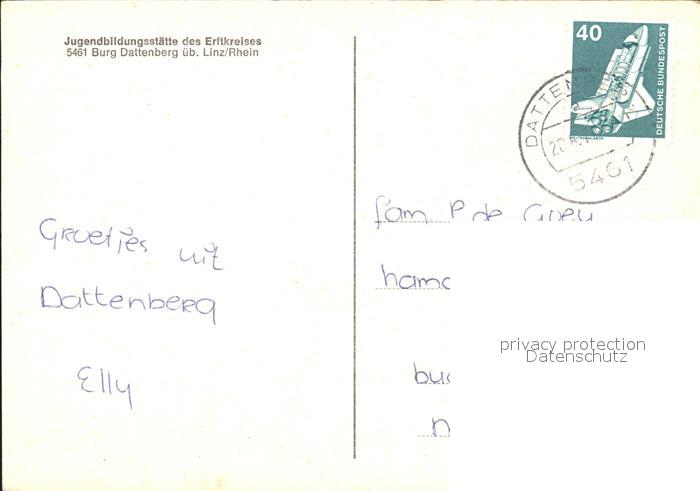 Jugendbildungsstätte des Erftkreises
5461 Burg Dattenberg üb. Linz/Rhein
40
DEUTSCHE BUNDESPOST
WELTRAUMLABOR
DATTEN
5461
Groetjes uit
Dattenberg
Elly
fam P de
privacy protection
Datenschutz